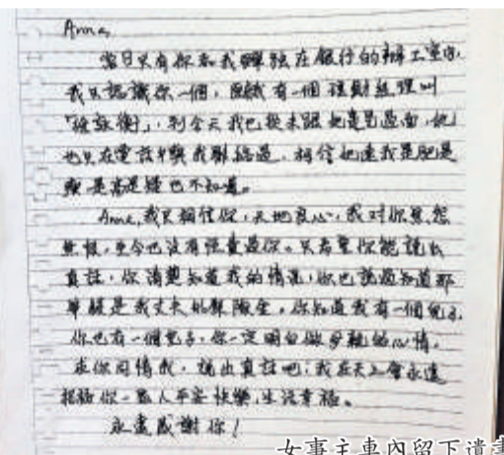 Anna,
當日只有你和我單獨在銀行的辦工室內,
我只認識你一個, 既然有一個 理財經理叫
詠衡」, 到今天我也從未跟她會見過面, 她
也只在電話中與我聯絡過, 相信她連我是肥是
瘦 是高是矮 也不知道。
Anna, 我只相信你, 天地良心, 我對你無怨
無恨, 至今也沒有怪責過你。只希望你能說出
真話, 你清楚知道我的情況, 你也說過知道那
筆錢是我丈夫的保險金, 你知道我有一個兒子,
你也有一個兒子, 你一定明白做母親的心情。
求你同情我, 說出真話吧! 我在天上會永遠
祝福你一家人平安快樂, 生活幸福。
永遠感謝你!
女事主車內留下遺書